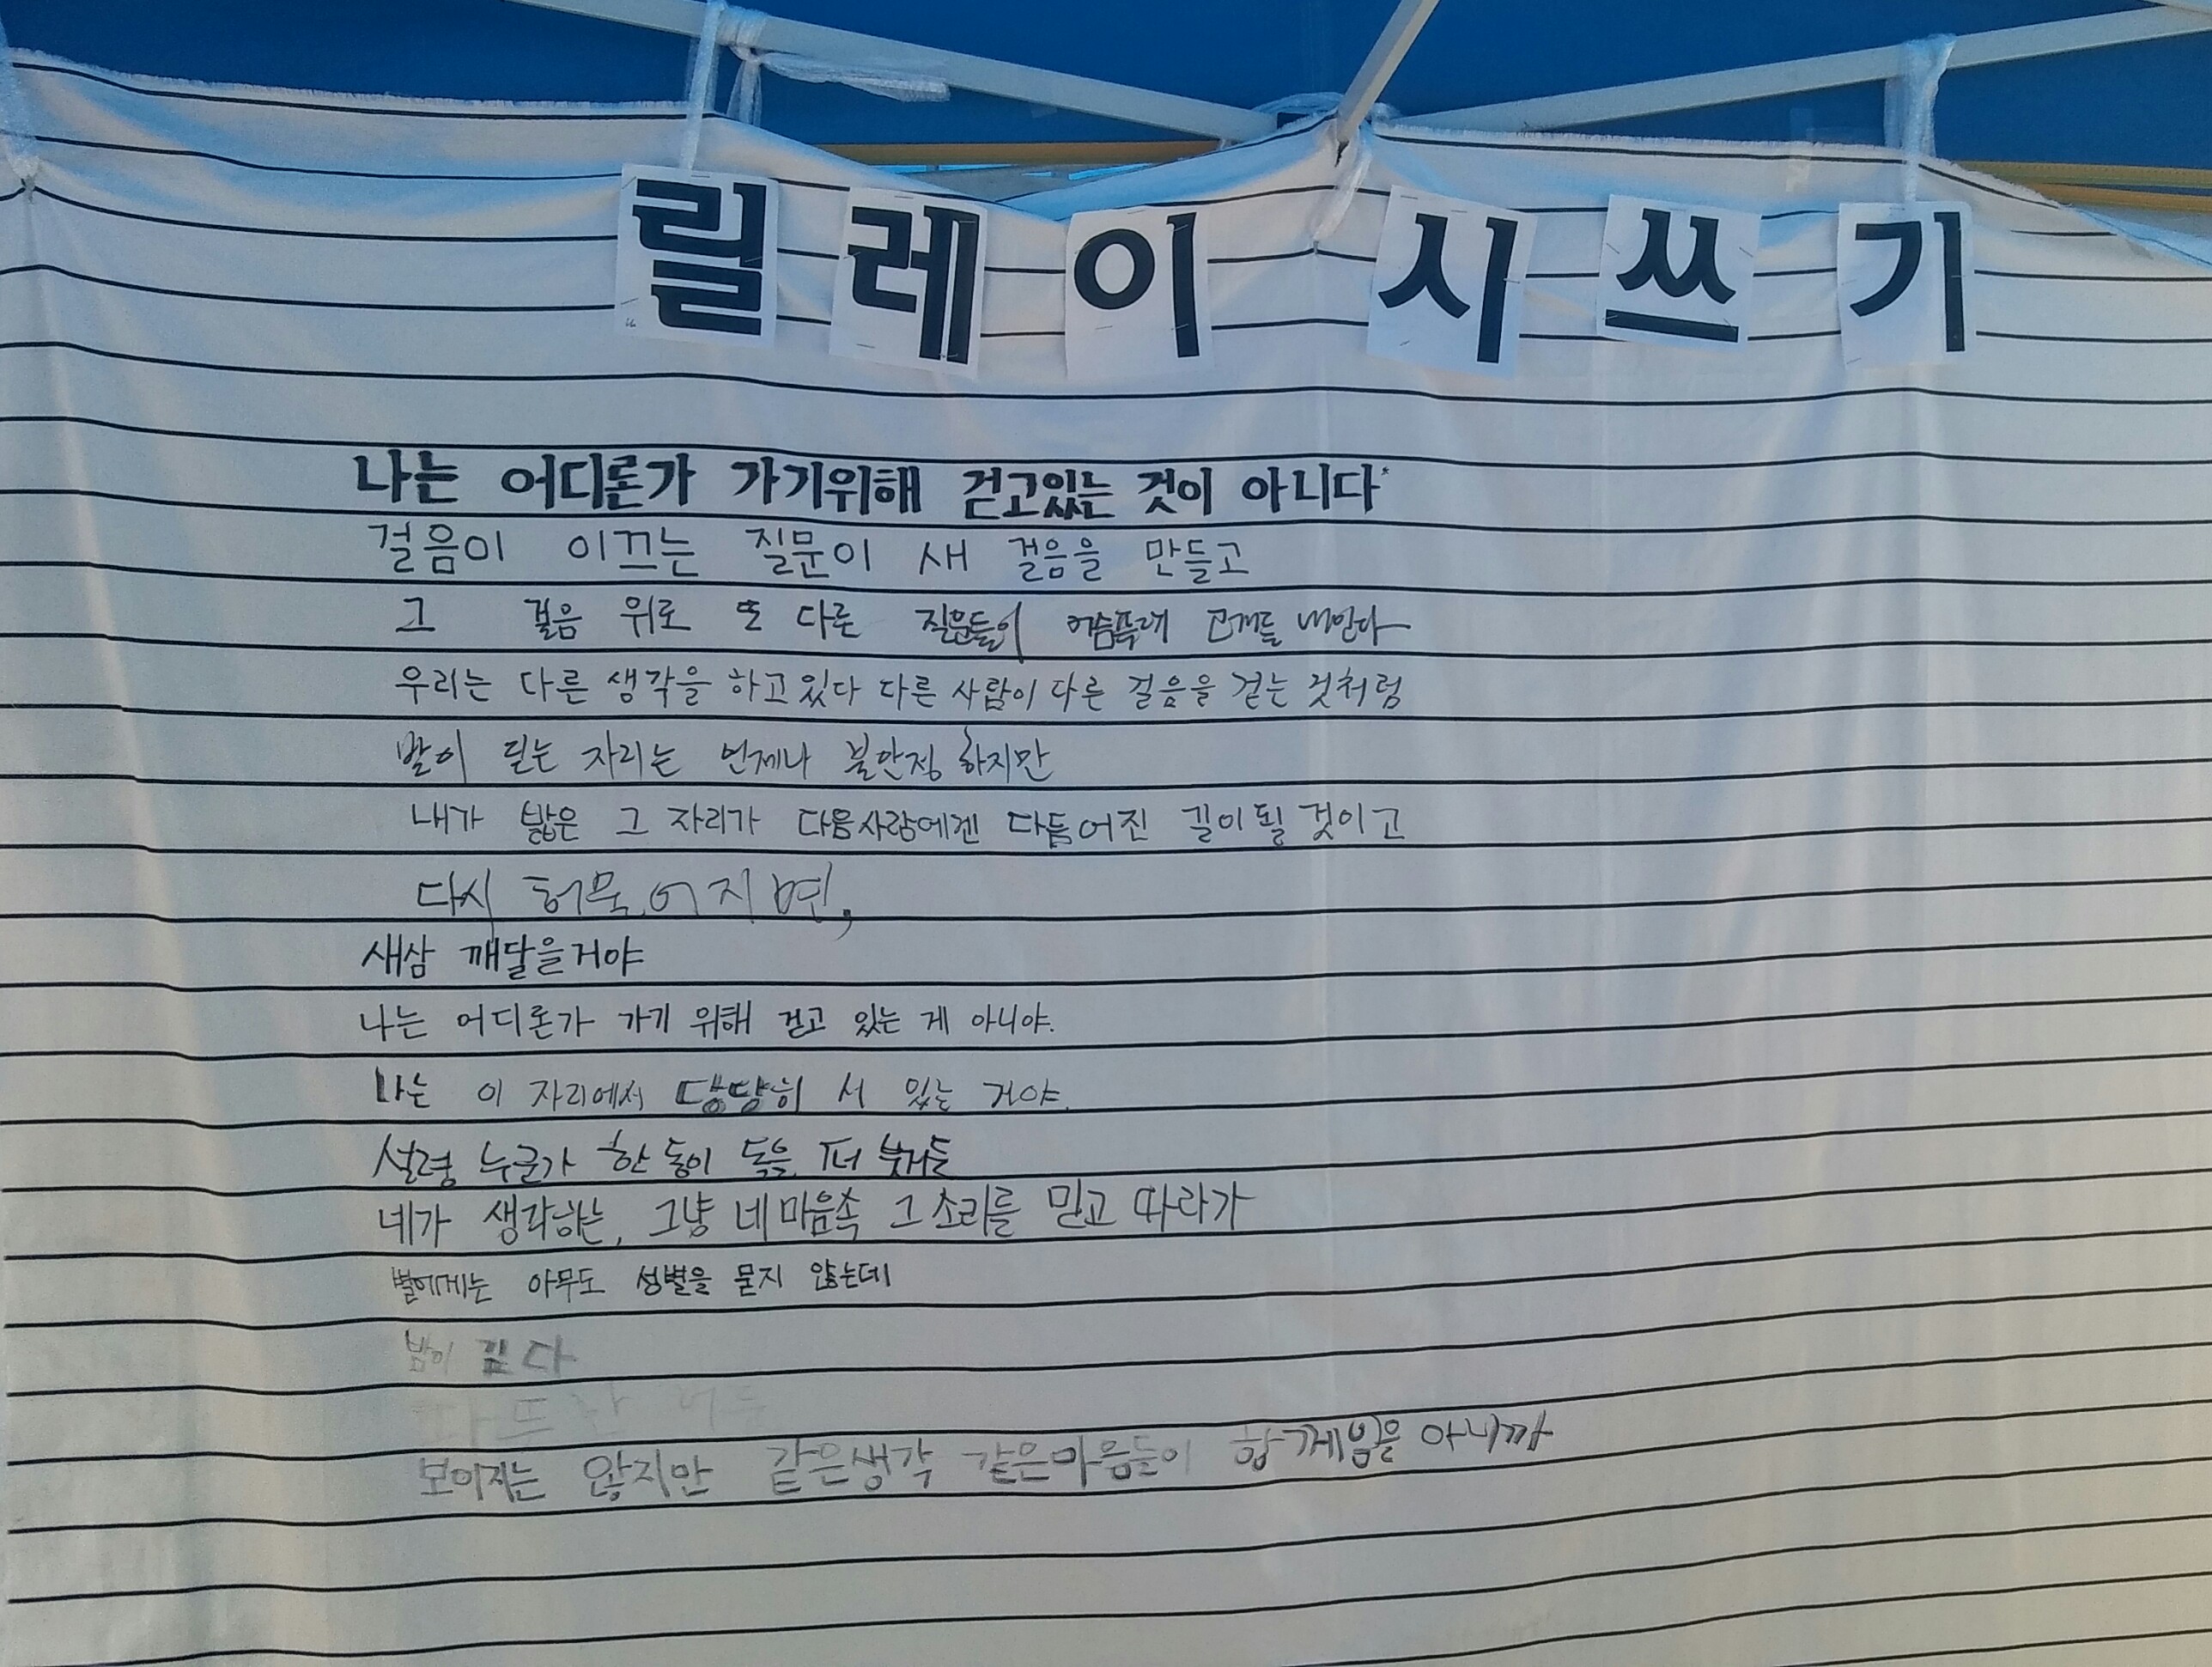 릴레이 시쓰기
나는 어디론가 가기위해 걷고있는 것이 아니다*
걸음이 이끄는 질문이 새 걸음을 만들고
그 걸음 위로 또 다른 질문들이 어슴푸레 고개를 내민다
우리는 다른 생각을 하고있다 다른 사람이 다른 걸음을 걷는 것처럼
발이 딛는 자리는 언제나 불안정 하지만
내가 밟은 그 자리가 다음사람에겐 다듬어진 길이될 것이고
다시 허물어지면,
새삼 깨달을거야
나는 어디론가 가기 위해 걷고 있는 게 아니야.
나는 이 자리에서 당당히 서 있는 거야.
설령 누군가 한 동이 독을 퍼 붓거든
네가 생각하는, 그냥 네 마음속 그 소리를 믿고 따라가
별에게는 아무도 성별을 묻지 않는데
밤이 깊다
보이지는 않지만 같은생각 같은마음들이 함께있음을 아니까